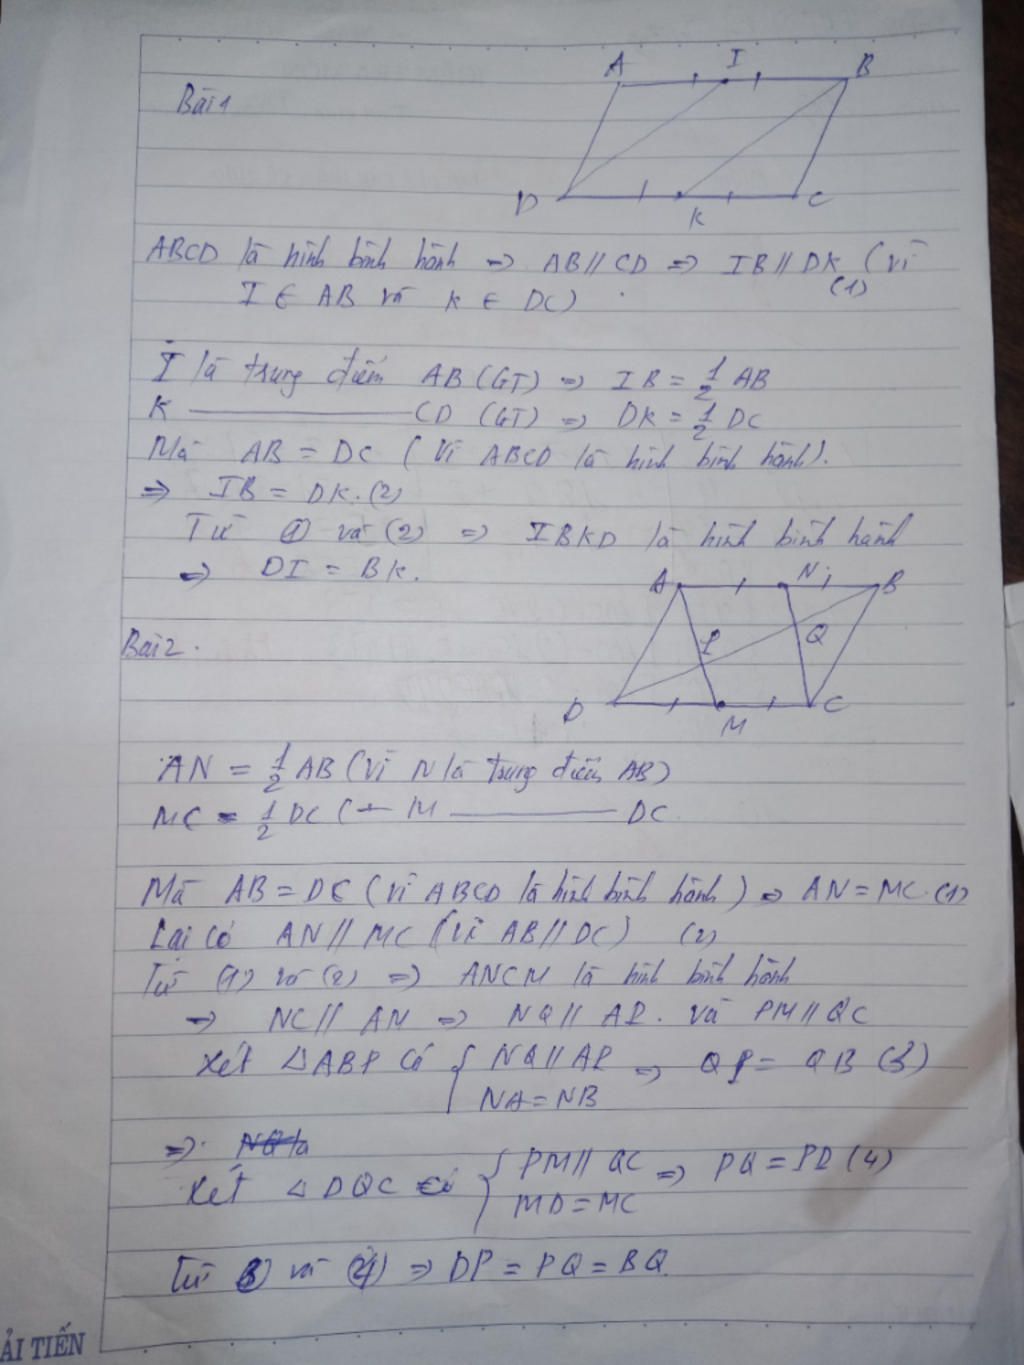 Bài 1
A I B
D K C
ABCD là hình bình hành => AB // CD => IB // DK (vì
(1)
I ∈ AB và K ∈ DC)
I là trung điểm AB (GT) => IB = 1/2 AB
K ———— CD (GT) => DK = 1/2 DC
Mà AB = DC (Vì ABCD là hình bình hành).
=> IB = DK. (2)
Từ (1) và (2) => IBKD là hình bình hành
=> DI = BK.
A N B
Bài 2.
P Q
D M C
AN = 1/2 AB (Vì N là trung điểm AB)
MC = 1/2 DC ( — M ———— DC
Mà AB = DC (Vì ABCD là hình bình hành) => AN = MC. (1)
Lại có AN // MC (Vì AB // DC) (2)
Từ (1) và (2) => ANCM là hình bình hành
=> NC // AN => NQ // AP. và PM // QC
Xét △ABP có { NQ // AP => QP = QB (3)
NA = NB
=>
Xét △DQC có { PM // QC => PQ = PD (4)
MD = MC
Từ (3) và (4) => DP = PQ = BQ
ẢI TIẾN